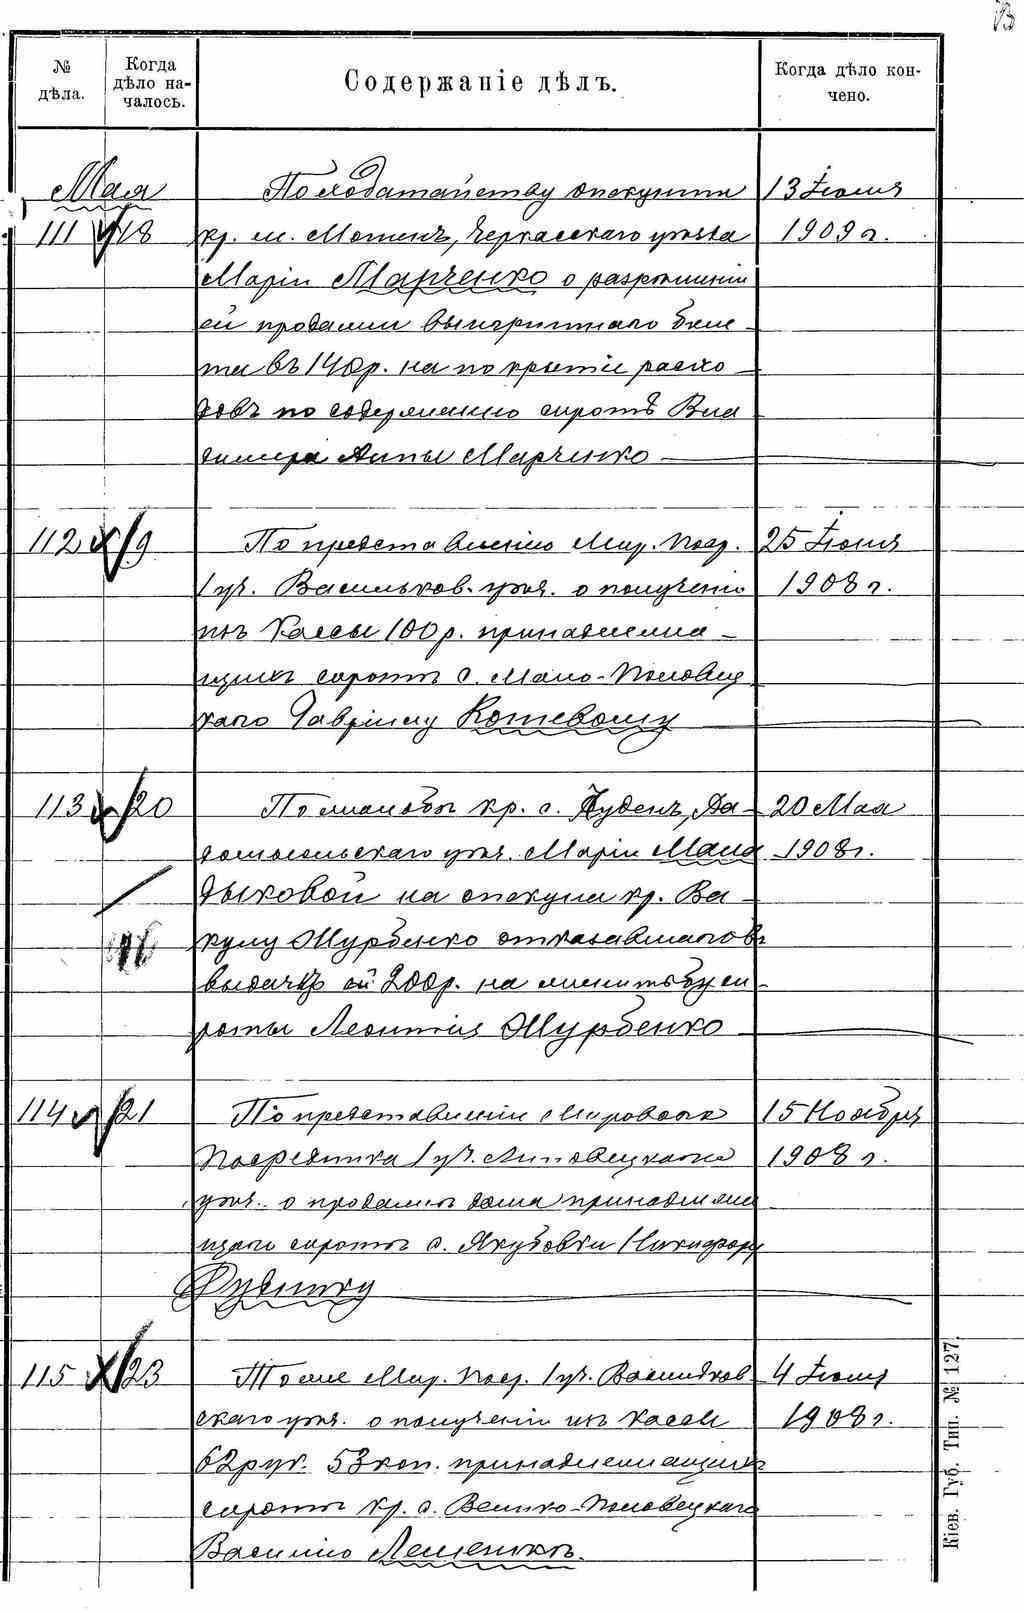 № дѣла.
Когда дѣло на-
чалось.
Содержаніе дѣлъ.
Когда дѣло кон-
чено.
Мая
111 18 По ходатайству опекунши 13 Іюня
кр. м. Мошенъ, Черкасскаго уѣзда 1909 г.
Маріи Марченко о разрѣшеніи
ей продажи выигрышнаго биле-
та въ 140 р. на покрытіе расхо-
довъ по содержанію сиротъ Вла
димира Анны Марченко
112 19 По представленію Мир. Поср. 25 Іюня
1 уч. Васильков. уѣз. о полученіи 1908 г.
изъ Кассы 100 р. принадлежа-
щихъ сиротѣ с. Мало-Половец
каго Гавріилу Кошевому
113 20 По жалобѣ кр. с. Нуденъ, Ра- 20 Мая
домысльскаго уѣз. Маріи Мала 1908 г.
дыковой на опекуна кр. Ва-
кулу Шурбенко отказавшагов
выдачѣ ей 200 р. на женитьбу си-
роты Леонтія Шурбенко
114 21 По представленіи Мироваго 15 Ноября
Посредника 1 уч. Липовецкаго 1908 г.
уѣз. о продажѣ дома принадлежа
щаго сиротѣ с. Якубовки Никифору
Руднику
115 23 Тоже Мир. Поср. 1 уч. Васильков 4 Іюня
скаго уѣз. о полученіи изъ Кассы 1908 г.
62 руб. 53 коп. принадлежащихъ
сиротѣ кр. с. Велико-Половецкаго
Василію Лещенко.
Кіев. Губ. Тип. № 127.